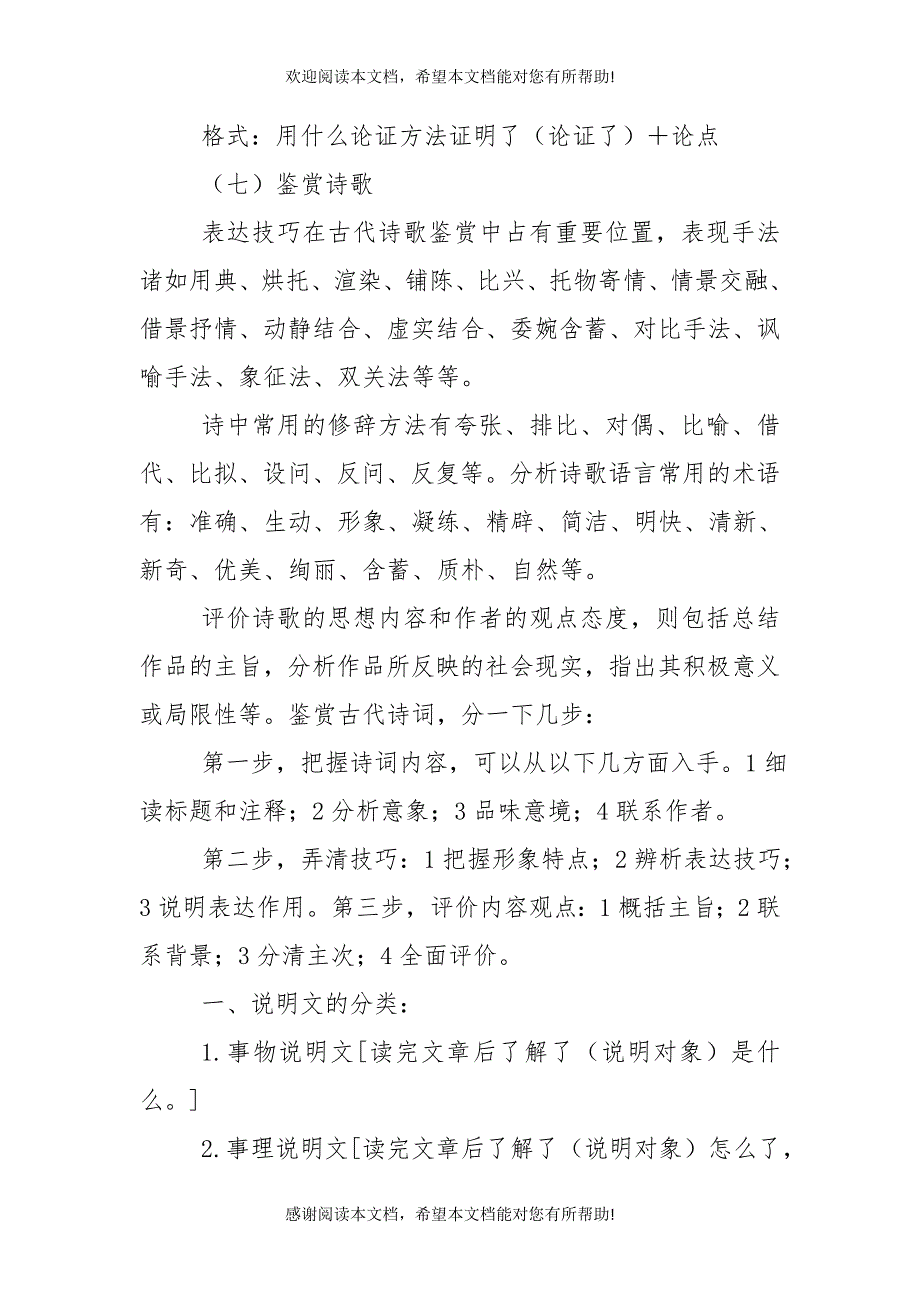 欢迎阅读本文档，希望本文档能对您有所帮助!
格式：用什么论证方法证明了（论证了）＋论点
（七）鉴赏诗歌
表达技巧在古代诗歌鉴赏中占有重要位置，表现手法
诸如用典、烘托、渲染、铺陈、比兴、托物寄情、情景交融、
借景抒情、动静结合、虚实结合、委婉含蓄、对比手法、讽
喻手法、象征法、双关法等等。
诗中常用的修辞方法有夸张、排比、对偶、比喻、借
代、比拟、设问、反问、反复等。分析诗歌语言常用的术语
有：准确、生动、形象、凝练、精辟、简洁、明快、清新、
新奇、优美、绚丽、含蓄、质朴、自然等。
评价诗歌的思想内容和作者的观点态度，则包括总结
作品的主旨，分析作品所反映的社会现实，指出其积极意义
或局限性等。鉴赏古代诗词，分一下几步：
第一步，把握诗词内容，可以从以下几方面入手。1 细
读标题和注释；2 分析意象；3 品味意境；4 联系作者。
第二步，弄清技巧：1 把握形象特点；2 辨析表达技巧；
3 说明表达作用。第三步，评价内容观点：1 概括主旨；2 联
系背景；3 分清主次；4 全面评价。
一、说明文的分类：
1.事物说明文[读完文章后了解了（说明对象）是什
么。]
2.事理说明文[读完文章后了解了（说明对象）怎么了，
感谢阅读本文档，希望本文档能对您有所帮助!